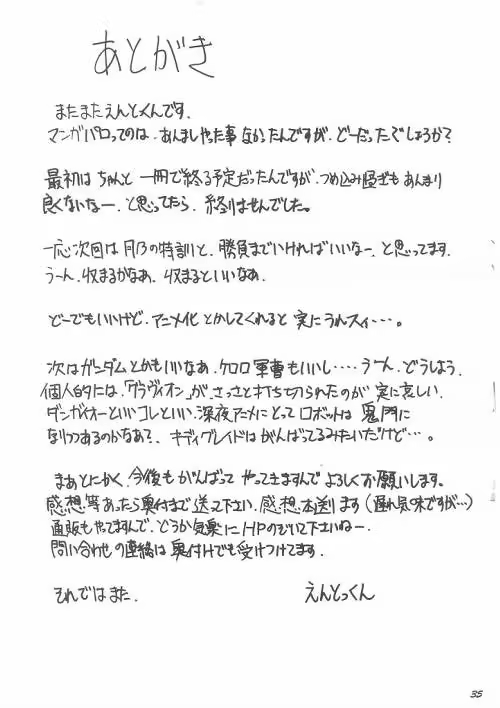 あとがき
またまたえんとっくんです.
マンガパロってのは.あんましやった事なかったんですが.どーだったでしょうか?
最初はちゃんと一冊で終る予定だったんですが.つめ込み過ぎもあんまり
良くないなー.と思ってたら.終りませんでした。
一応次回は月乃の特訓と.勝負までいければいいなー.と思ってます.
うーん.収まるかなあ.収まるといいなぁ.
どーでもいいけど.アニメ化とかしてくれると実にうれスィ・・・.
次はガンダムとかもいいなあ.ケロロ軍曹もいいし・・・・うーん.どうしよう.
個人的には.「グラヴィオン」が.さっさと打ち切られたのが実に哀しい.
ダンガイオーといいコレといい.深夜アニメにとってロボットは鬼門に
なりつつあるのかなあ?.キディグレイドはがんばってるみたいだけど・・・.
まあとにかく.今後もがんばってやってきますんでよろしくお願いします。
感想等あったら奥付まで送って下さい.感想本送ります(遅れ気味ですが・・・)
通販もやてますんで.どうか気楽にHPのぞいて下さいねー.
問い合わせの連絡は奥付けでも受けつけてます.
それではまた.
えんとっくん
35